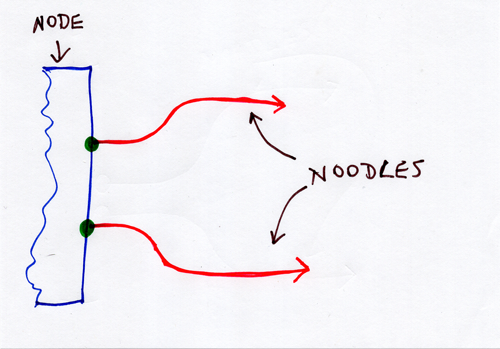 NODE
NOODLES